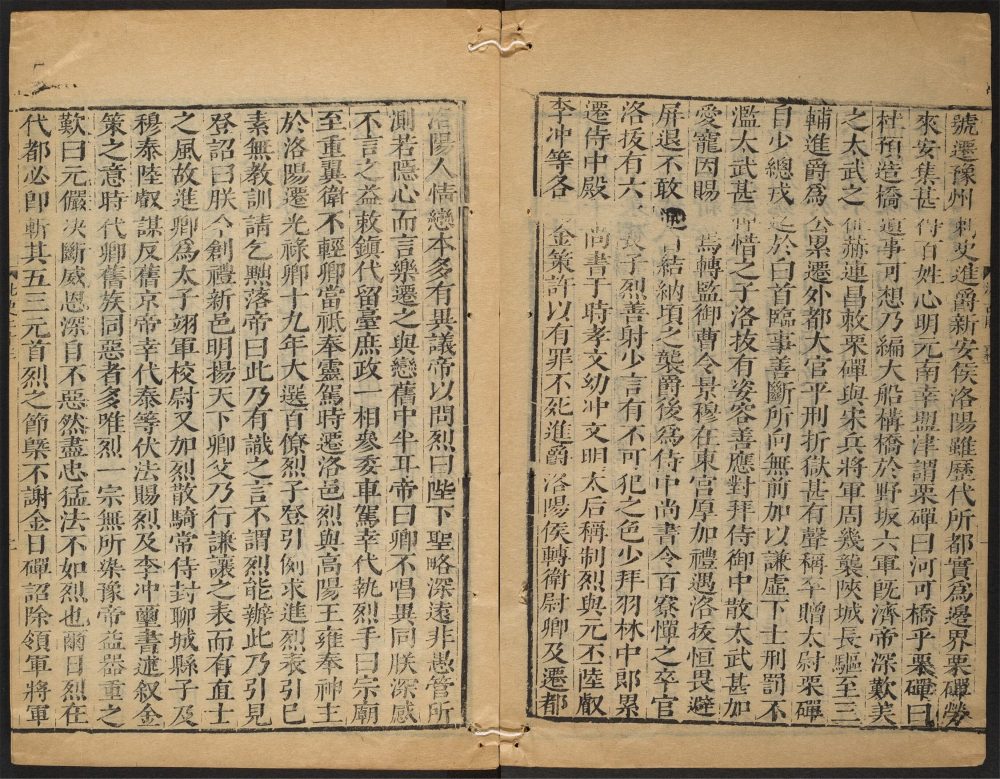 號遷豫州刺史進爵新安侯洛陽雖歷代所都實爲邊界栗磾勞
來安集甚得百姓心明元南幸盟津謂栗磾曰河可橋乎栗磾曰
杜預造橋遺事可想乃編大船構橋於野坂六軍既濟帝深歎美
之太武之征赫連昌敕栗磾與宋兵將軍周幾襲陝城長驅至三
輔進爵爲公累遷外都大官平刑折獄甚有聲稱卒贈太尉栗磾
自少總戎迄於白首臨事善斷所向無前加以謙虛下士刑罰不
濫太武甚悼惜之子洛拔有姿容善應對拜侍御中散太武甚加
愛寵因賜焉轉監御曹令景穆在東宮厚加禮遇洛拔恒畏避
屏退不敢結納頃之襲爵後爲侍中尚書令百寮憚之卒官
洛拔有六長子烈善射少言有不可犯之色少拜羽林中郎累
遷侍中殿尚書于時孝文幼沖文明太后稱制烈與元丕陸叡
李冲等各金策許以有罪不死進爵洛陽侯轉衛尉卿及遷都
洛陽人情戀本多有異議帝以問烈曰陛下聖略深遠非愚管所
測若隱心而言樂遷之與戀舊中半耳帝曰卿不唱異同朕深感
不言之益敕鎮代留臺庶政一相參委車駕幸代執烈手曰宗廟
至重翼衛不輕卿當祇奉靈駕時遷洛邑烈與高陽王雍奉神主
於洛陽遷光祿卿十九年大選百僚烈子登引例求進烈表引已
素無教訓請乞黜落帝曰此乃有識之言不謂烈能辦此乃引見
登詔曰朕今創禮新邑明揚天下卿父乃行謙讓之表而有直士
之風故進卿爲太子翊軍校尉又加烈散騎常侍封聊城縣子及
穆泰陸叡謀反舊京帝幸代泰等伏法賜烈及李冲璽書述叙金
策之意時代卿舊族同惡者多唯烈一宗無所染豫帝益器重之
歎曰元儼決斷威恩深自不惡然盡忠猛法不如烈也爾日烈在
代都必卽斬其五三元首烈之節槩不謝金日磾詔除領軍將軍